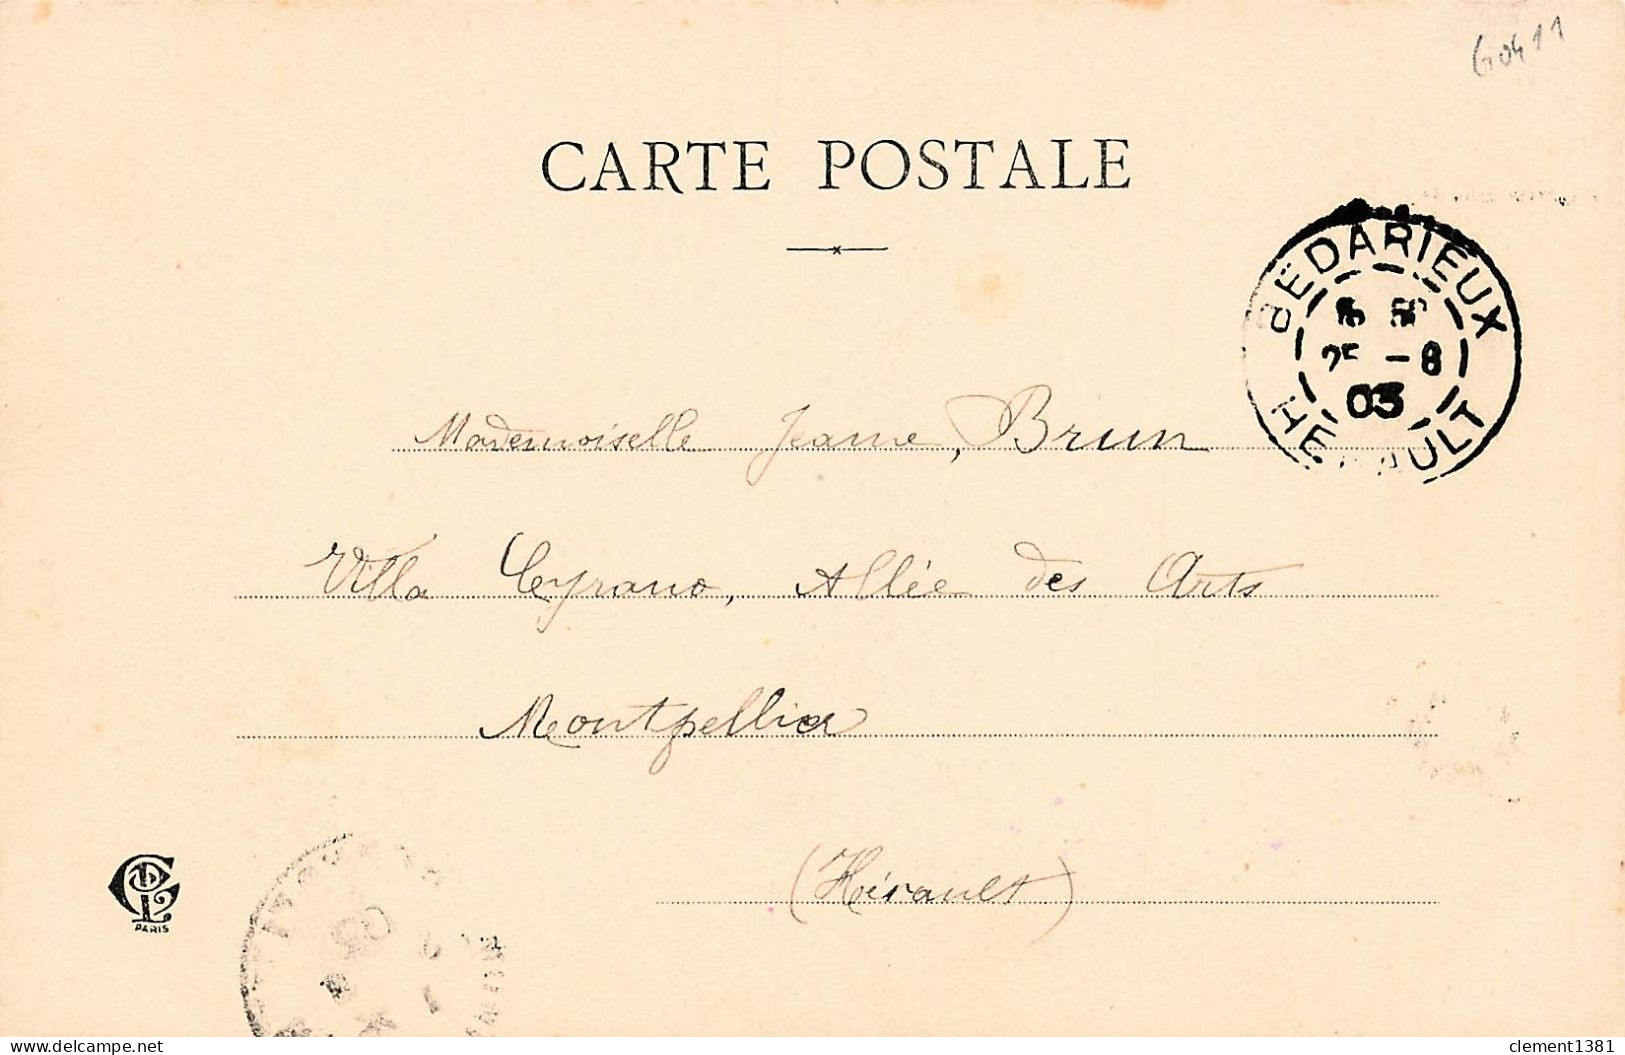 G0411
CARTE POSTALE
BÉDARIEUX
25 -8
03
HÉRAULT
Mademoiselle Jeanne, Brun
Villa Cyrano, Allée des Arts
Montpellier
(Hérault)
PARIS
delcampe.net
clement1381